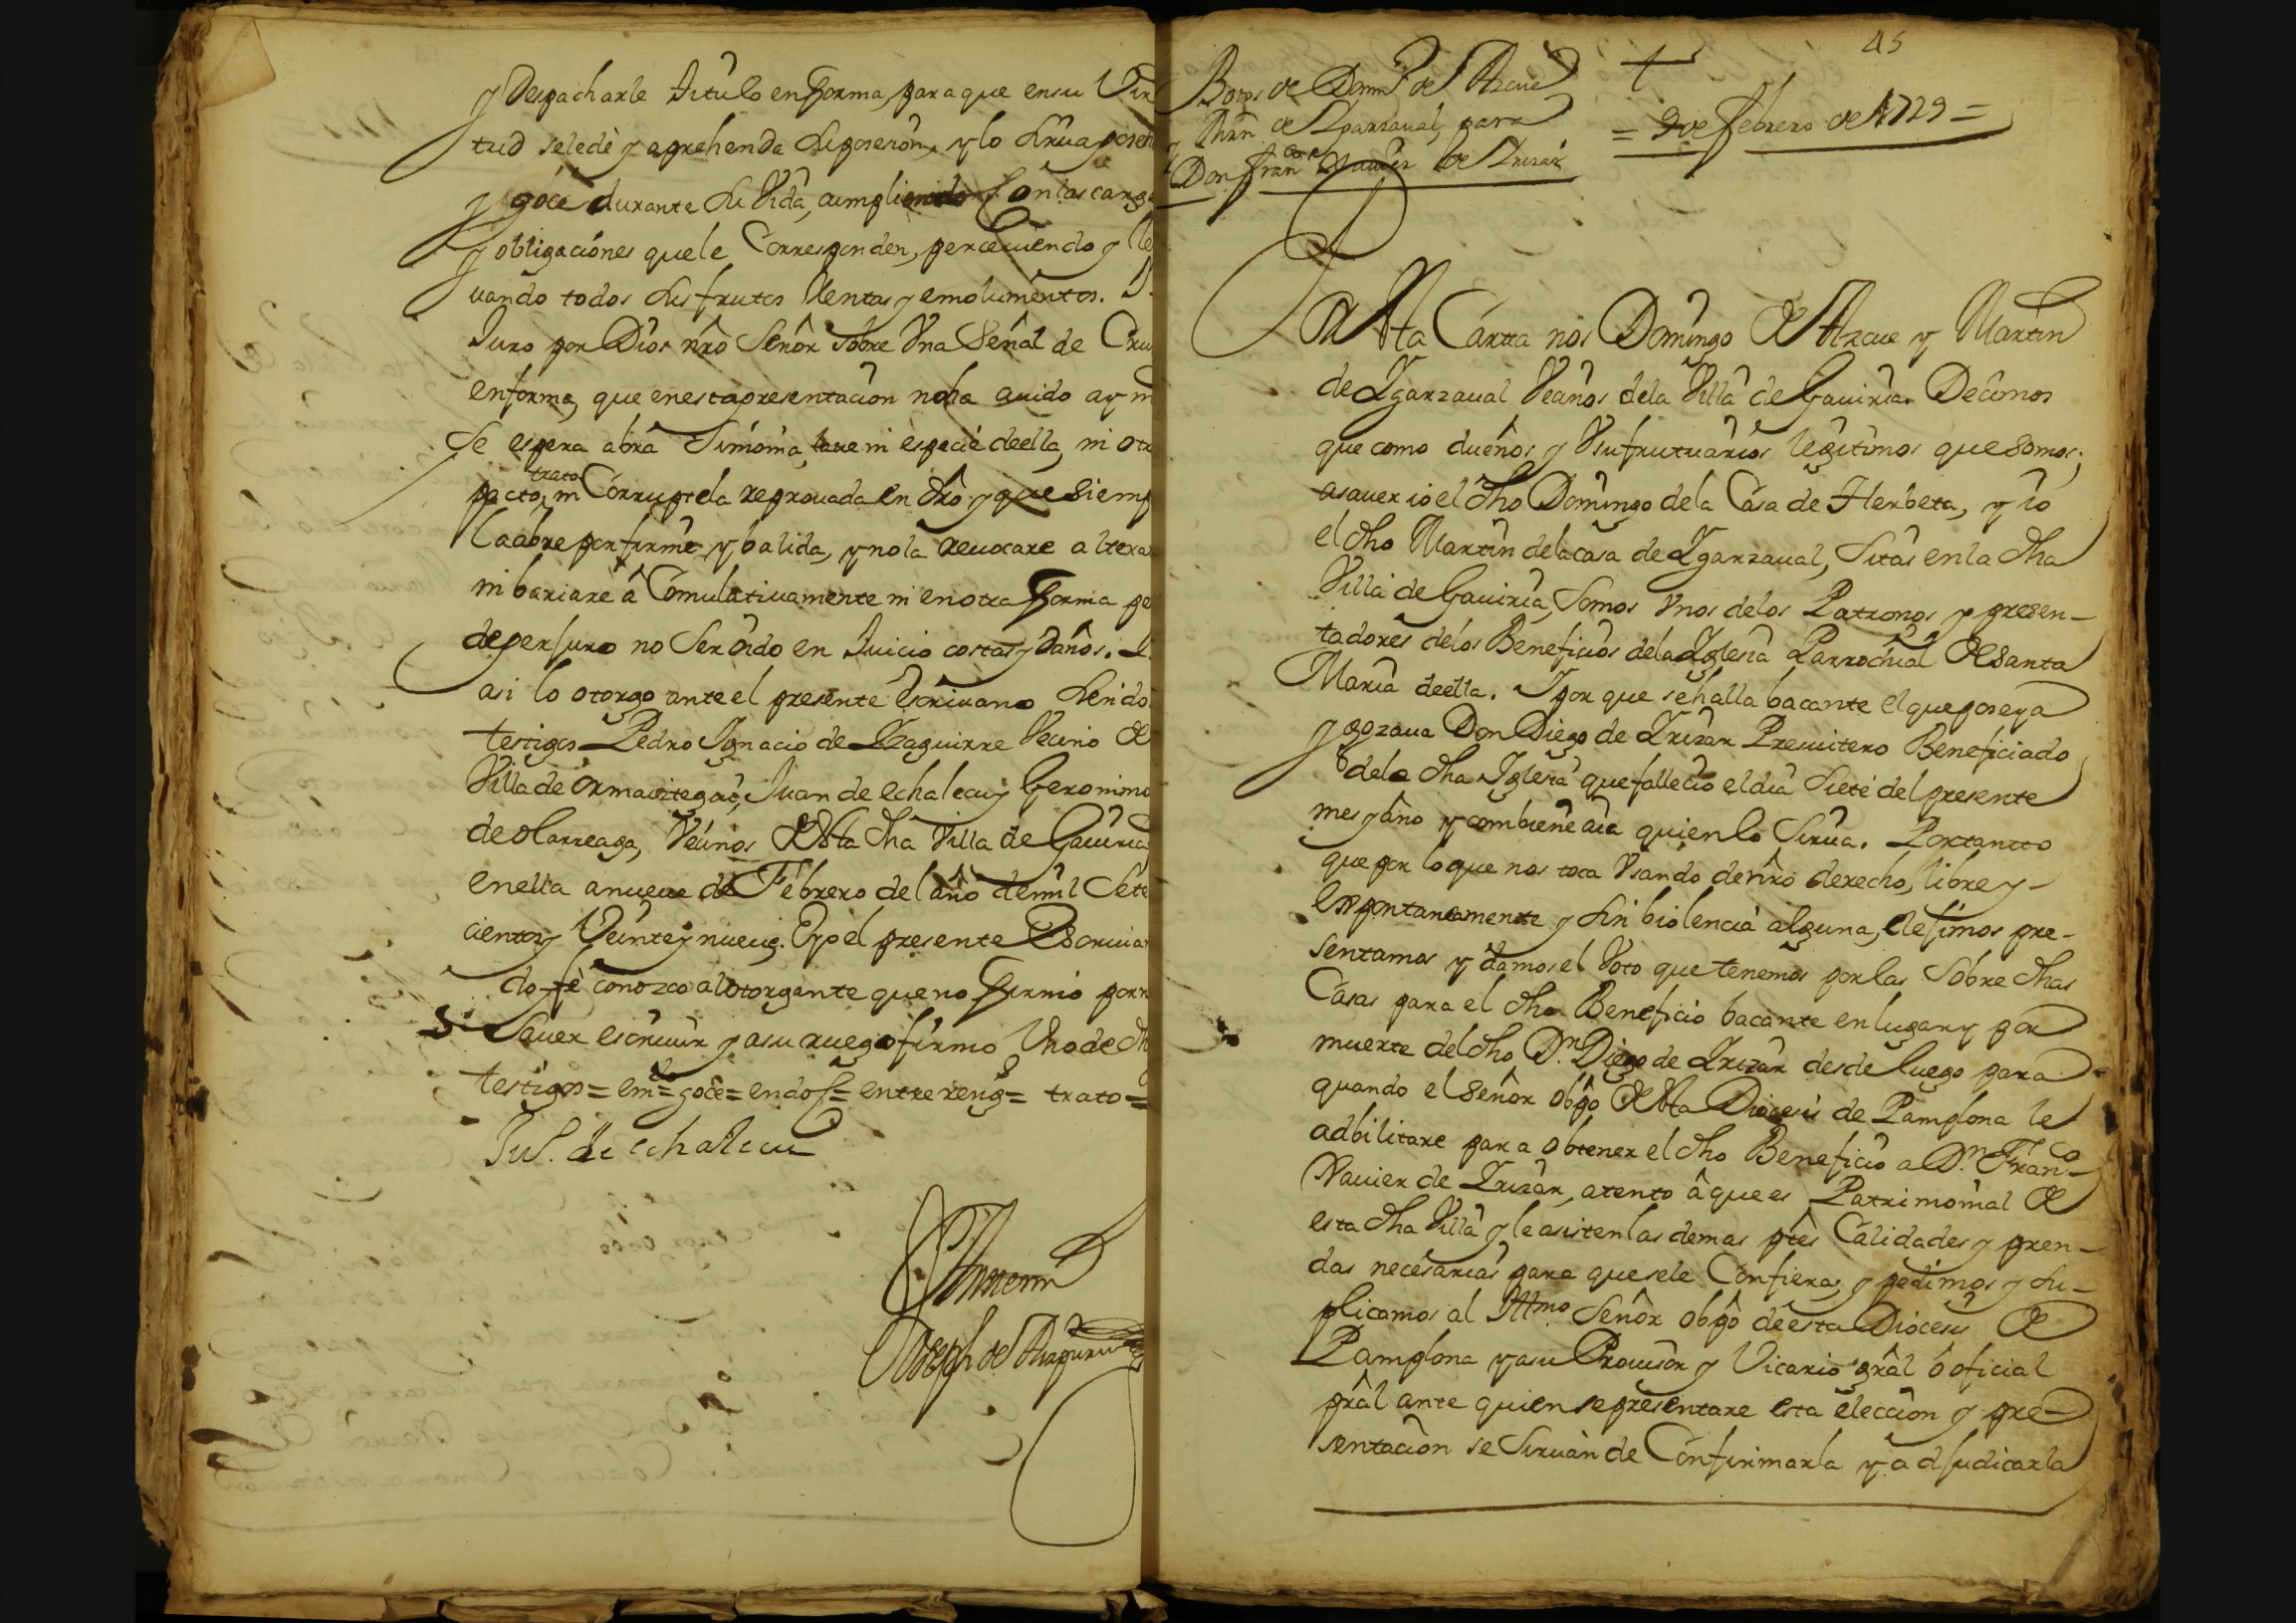 y Despacharle titulo en forma, para que en su Vir
tud sele dè y aprehenda su poseson, y lo sirua posea
y goce durante su Vida, cumpliendo con las carga
y obligaciones que le Corresponden, perceuiendo y le
uando todos sus frutos Rentas y emolumentos. Y
Juro por Dios nrô Señor sobre Vna Señal de Cru
en forma, que en esta presentacion no ha auido ay ni
se espera abrà Simonia laue ni especie de ella, ni otr
trato
pacto, ni Corruptela reprouada en drô y que siemp
la abre por firme y balida, y no la reuocare alterar
ni bariare â Comulatiuamente ni en otra forma pe
de perjuro no ser oido en Juicio costas y daños. Y
asi lo otorgo ante el presente escriuano siendo
testigos Pedro Ignacio de Yzaguirre Vecino de
Villa de Ormaiztegui, Juan de echalecu y Geronimo
de olarreaga, Vecinos de esta dha Villa de Gauiria
en ella a nueue de Febrero del año de mil Sete
cientos y Veinte y nueue. E yo el presente Escriuan
do fè conozco al otorgante que no firmó porn
Sauer escriuir y a su ruego firmo Vno de dh
testigos = emdo = goce = endos = entrereng = trato =
Ju. de echalecu
Antemi
Joseph de Aizpuru
45
Botos de Domo de Azcue
y Mrn de Ygarzaual, para
Don Franco Xauier de Yrizar
= 9 de febrero de 1729 =
Por esta Cartta nos Domingo de Azcue y Martin
de Ygarzaual Vecinos dela Villa de Gauiria. Decimos
que como dueños y Vsufrutuarios legitimos que somos,
asauer io el dho Domingo dela Casa de Herbeta, y io
el dho Martin dela casa de Ygarzaual, sitas en la dha
Villa de Gauiria, somos Vnos de los Patronos y presen-
tadores delos Beneficios dela Yglesia Parrochial de Santa
Maria de ella. Y por que se halla bacante el que poseya
y gozaua Don Diego de Yrizar Presuitero Beneficiado
dela dha Yglesia que fallecio el dia siete del presente
mes y año y combiene aia quien lo sirua. Portantto
que por lo que nos toca Vsando de nrô derecho, libre y-
espontaneamente y sin biolencia alguna, elejimos pre-
sentamos y damos el Voto que tenemos por las sobre dhas
Casas para el dho Beneficio bacante en lugar y por
muerte del dho Dn. Diego de Yrizar desde luego para
quando el Señor obpô de esta Diocesis de Pamplona le
adbilitare para obtener el dho Beneficio a Dn. Franco
Xauier de Yrizar, atento â que es Patrimonial de
esta dha Villa y le asisten las demas ptês Calidades y pren-
das necesarias para que se le Confiera, y pedimos y su-
plicamos al Illmo. Señor obpô de esta Diocesis de
Pamplona y asu Prouisor y Vicario grâl ô oficial
prâl ante quien se presentare esta eleccion y pre-
sentacion se siruan de Confirmarla y adjudicarla